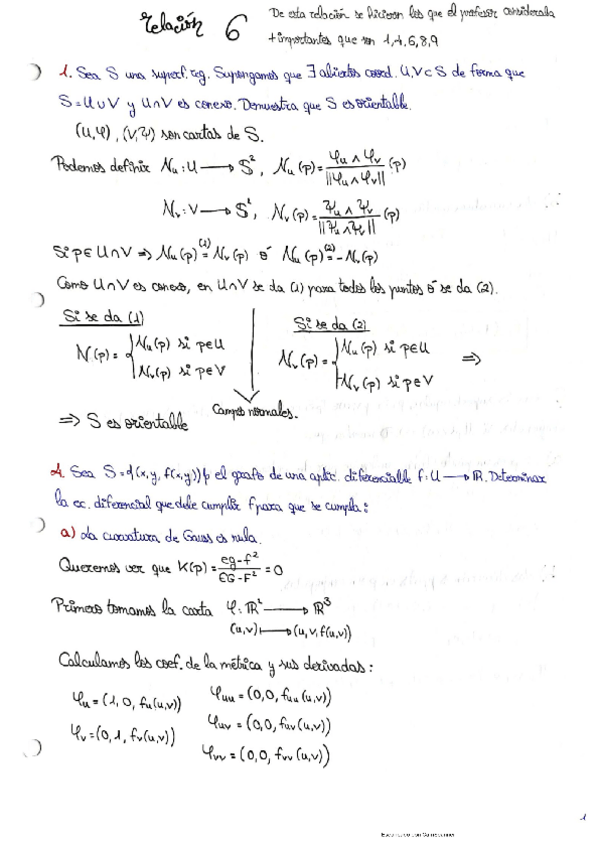 Relación 6
De esta relación se hicieron los que el profesor considerada
+importantes que son 1,4,6,8,9
1. Sea S una superf. reg. Supongamos que ∃ abiertos coord. U,V⊂S de forma que
S=U∪V y U∩V es conexo. Demuestra que S es orientable.
(U,φ), (V,ψ) son cartas de S.
Podemos definir Nᵤ:U→S², Nᵤ(p)= φᵤ∧φᵥ/||φᵤ∧φᵥ|| (p)
Nᵥ:V→S², Nᵥ(p)= ψᵤ∧ψᵥ/||ψᵤ∧ψᵥ|| (p)
Si p∈U∩V ⇒ Nᵤ(p) =⁽¹⁾ Nᵥ(p) ó Nᵤ(p) =⁽²⁾ -Nᵥ(p)
Como U∩V es conexo, en U∩V se da (1) para todos los puntos ó se da (2).
Si se da (1)
Si se da (2)
N(p)= { Nᵤ(p) si p∈U
Nᵥ(p) si p∈V
Nᵥ(p)= { Nᵤ(p) si p∈U
-Nᵥ(p) si p∈V
⇒
Campos normales.
⇒ S es orientable
4. Sea S={(x,y,f(x,y))} el grafo de una aplic. diferenciable f:U→ℝ. Determinar
la ec. diferencial que debe cumplir f para que se cumpla:
a) La curvatura de Gauss es nula.
Queremos ver que K(p)= eg-f²/EG-F² =0
Primero tomamos la carta φ:ℝ²→ℝ³
(u,v)↦(u,v,f(u,v))
Calculamos los coef. de la métrica y sus derivadas:
φᵤ=(1,0,fᵤ(u,v))
φᵤᵤ=(0,0,fᵤᵤ(u,v))
φᵥ=(0,1,fᵥ(u,v))
φᵤᵥ=(0,0,fᵤᵥ(u,v))
φᵥᵥ=(0,0,fᵥᵥ(u,v))
1
Escaneado con CamScanner